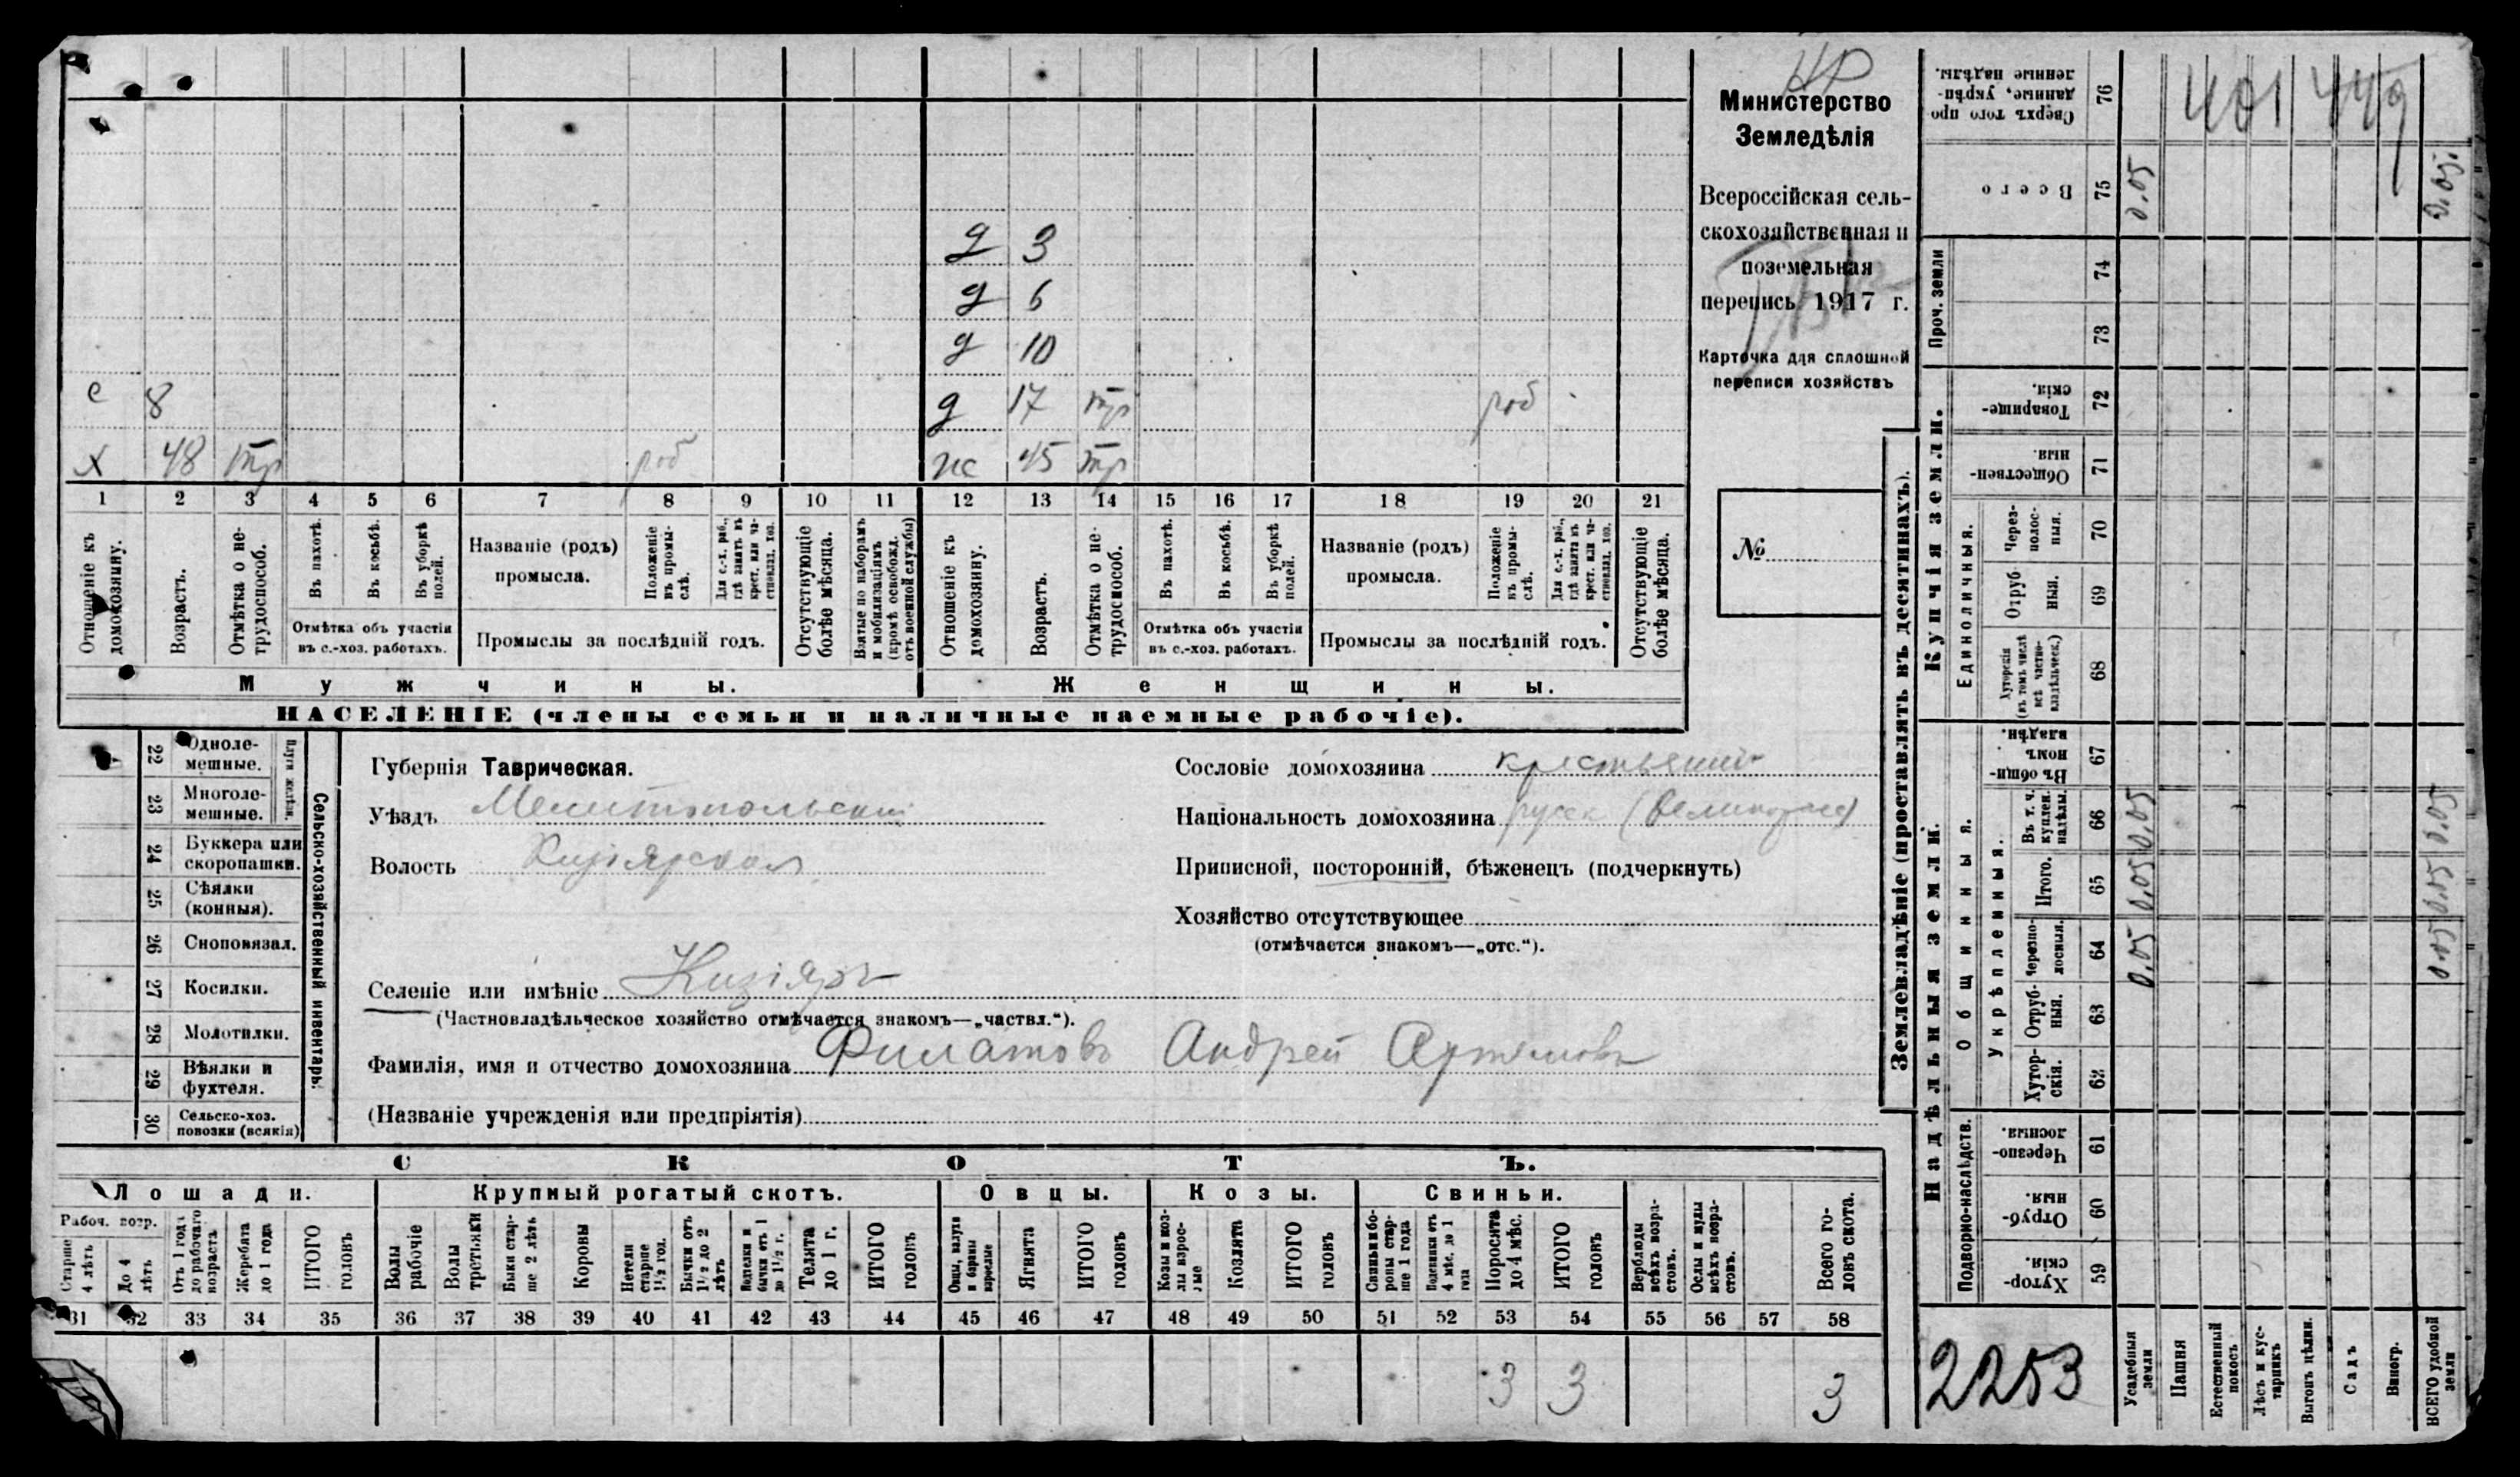 НР
Министерство
Земледѣлія
Всероссійская сель-
скохозяйственная и
поземельная
перепись 1917 г.
Карточка для сплошной
переписи хозяйствъ
№
д 3
д 6
д 10
с 8 д 17 тр роб
х 48 тр роб ж 45 тр
1 2 3 4 5 6 7 8 9 10 11 12 13 14 15 16 17 18 19 20 21
Отношеніе къ домохозяину.
Возрастъ.
Отмѣтка о не-трудоспособ.
Въ пахотѣ.
Въ косьбѣ.
Въ уборкѣ полей.
Отмѣтка объ участіи
въ с.-хоз. работахъ.
Названіе (родъ)
промысла.
Положеніе въ промы-слѣ.
Для с.-х. раб., гдѣ занятъ въ крест. или ча-стновлад. хоз.
Промыслы за послѣдній годъ.
Отсутствующіе болѣе мѣсяца.
Взятые по наборамъ и мобилизаціямъ (кромѣ освобожд. отъ военной службы)
Отношеніе къ домохозяину.
Возрастъ.
Отмѣтка о не-трудоспособ.
Въ пахотѣ.
Въ косьбѣ.
Въ уборкѣ полей.
Отмѣтка объ участіи
въ с.-хоз. работахъ.
Названіе (родъ)
промысла.
Положеніе въ промы-слѣ.
Для с.-х. раб., гдѣ занятъ въ крест. или ча-стновлад. хоз.
Промыслы за послѣдній годъ.
Отсутствующіе болѣе мѣсяца.
Мужчины. Женщины.
НАСЕЛЕНІЕ (члены семьи и наличные наемные рабочіе).
Сельско-хозяйственный инвентарь.
Плуги желѣзн.
22 Одноле-мешные.
23 Многоле-мешные.
24 Буккера или скоропашки.
25 Сѣялки (конныя).
26 Сноповязал.
27 Косилки.
28 Молотилки.
29 Вѣялки и фухтеля.
30 Сельско-хоз. повозки (всякія)
Губернія Таврическая.
Уѣздъ Мелитопольскій
Волость Кизіярская
Сословіе домохозяина крестьянинъ
Національность домохозяина русск (Великоросс)
Приписной, посторонній, бѣженецъ (подчеркнуть)
Хозяйство отсутствующее
(отмѣчается знакомъ—„отс.“).
Селеніе или имѣніе Кизіяръ
(Частновладѣльческое хозяйство отмѣчается знакомъ—„частвл.“).
Фамилія, имя и отчество домохозяина Филатовъ Андрей Артемовъ
(Названіе учрежденія или предпріятія)
СКОТЪ.
Лошади. Крупный рогатый скотъ. Овцы. Козы. Свиньи.
Рабоч. возр.
Старше 4 лѣтъ
До 4 лѣтъ
Отъ 1 года до рабочаго возраста
Жеребята до 1 года
ИТОГО головъ
Волы рабочіе
Волы третьяки
Быки стар-ше 2 лѣтъ
Коровы
Нетели старше 1½ год.
Бычки отъ 1½ до 2 лѣтъ
Подтелки и бычки отъ 1 до 1½ г.
Телята до 1 г.
ИТОГО головъ
Овцы, валухи и бараны взрослые
Ягнята
ИТОГО головъ
Козы и коз-лы взрос-лые
Козлята
ИТОГО головъ
Свиньи и бо-ровы стар-ше 1 года
Подсвинки отъ 4 мѣс. до 1 года
Поросята до 4 мѣс.
ИТОГО головъ
Верблюды всѣхъ возра-стовъ.
Ослы и мулы всѣхъ возра-стовъ.
Всего го-ловъ скота.
31 32 33 34 35 36 37 38 39 40 41 42 43 44 45 46 47 48 49 50 51 52 53 54 55 56 57 58
3 3 3
Землевладѣніе (проставлять въ десятинахъ).
Надѣльныя земли.
Купчія земли.
Проч. земли
Подворно-наслѣдств.
Общинныя.
Укрѣпленныя.
Единоличныя.
Сверхъ того про данные, укрѣп-ленные надѣлы. 76
Всего 75
74
73
Товарище-скія. 72
Обществен-ныя. 71
Через-полос-ныя. 70
Отруб-ныя. 69
Хуторскія (въ томъ числѣ всѣ частно-владѣльческ.) 68
Въ общин-номъ владѣн. 67
Въ т. ч. куплен. надѣлы. 66
Итого. 65
Черезпо-лосныя. 64
Отруб-ныя. 63
Хутор-скія. 62
Черезпо-лосныя. 61
Отруб-ныя. 60
Хутор-скія. 59
401 449
0.05 0.05
0.05 0.05
0.05 0.05
0.05 0.05
2253
Усадебныя земли
Пашня
Естественный покосъ
Лѣсъ и кус-тарникъ
Выгонъ цѣлин.
Садъ
Виногр.
ВСЕГО удобной земли